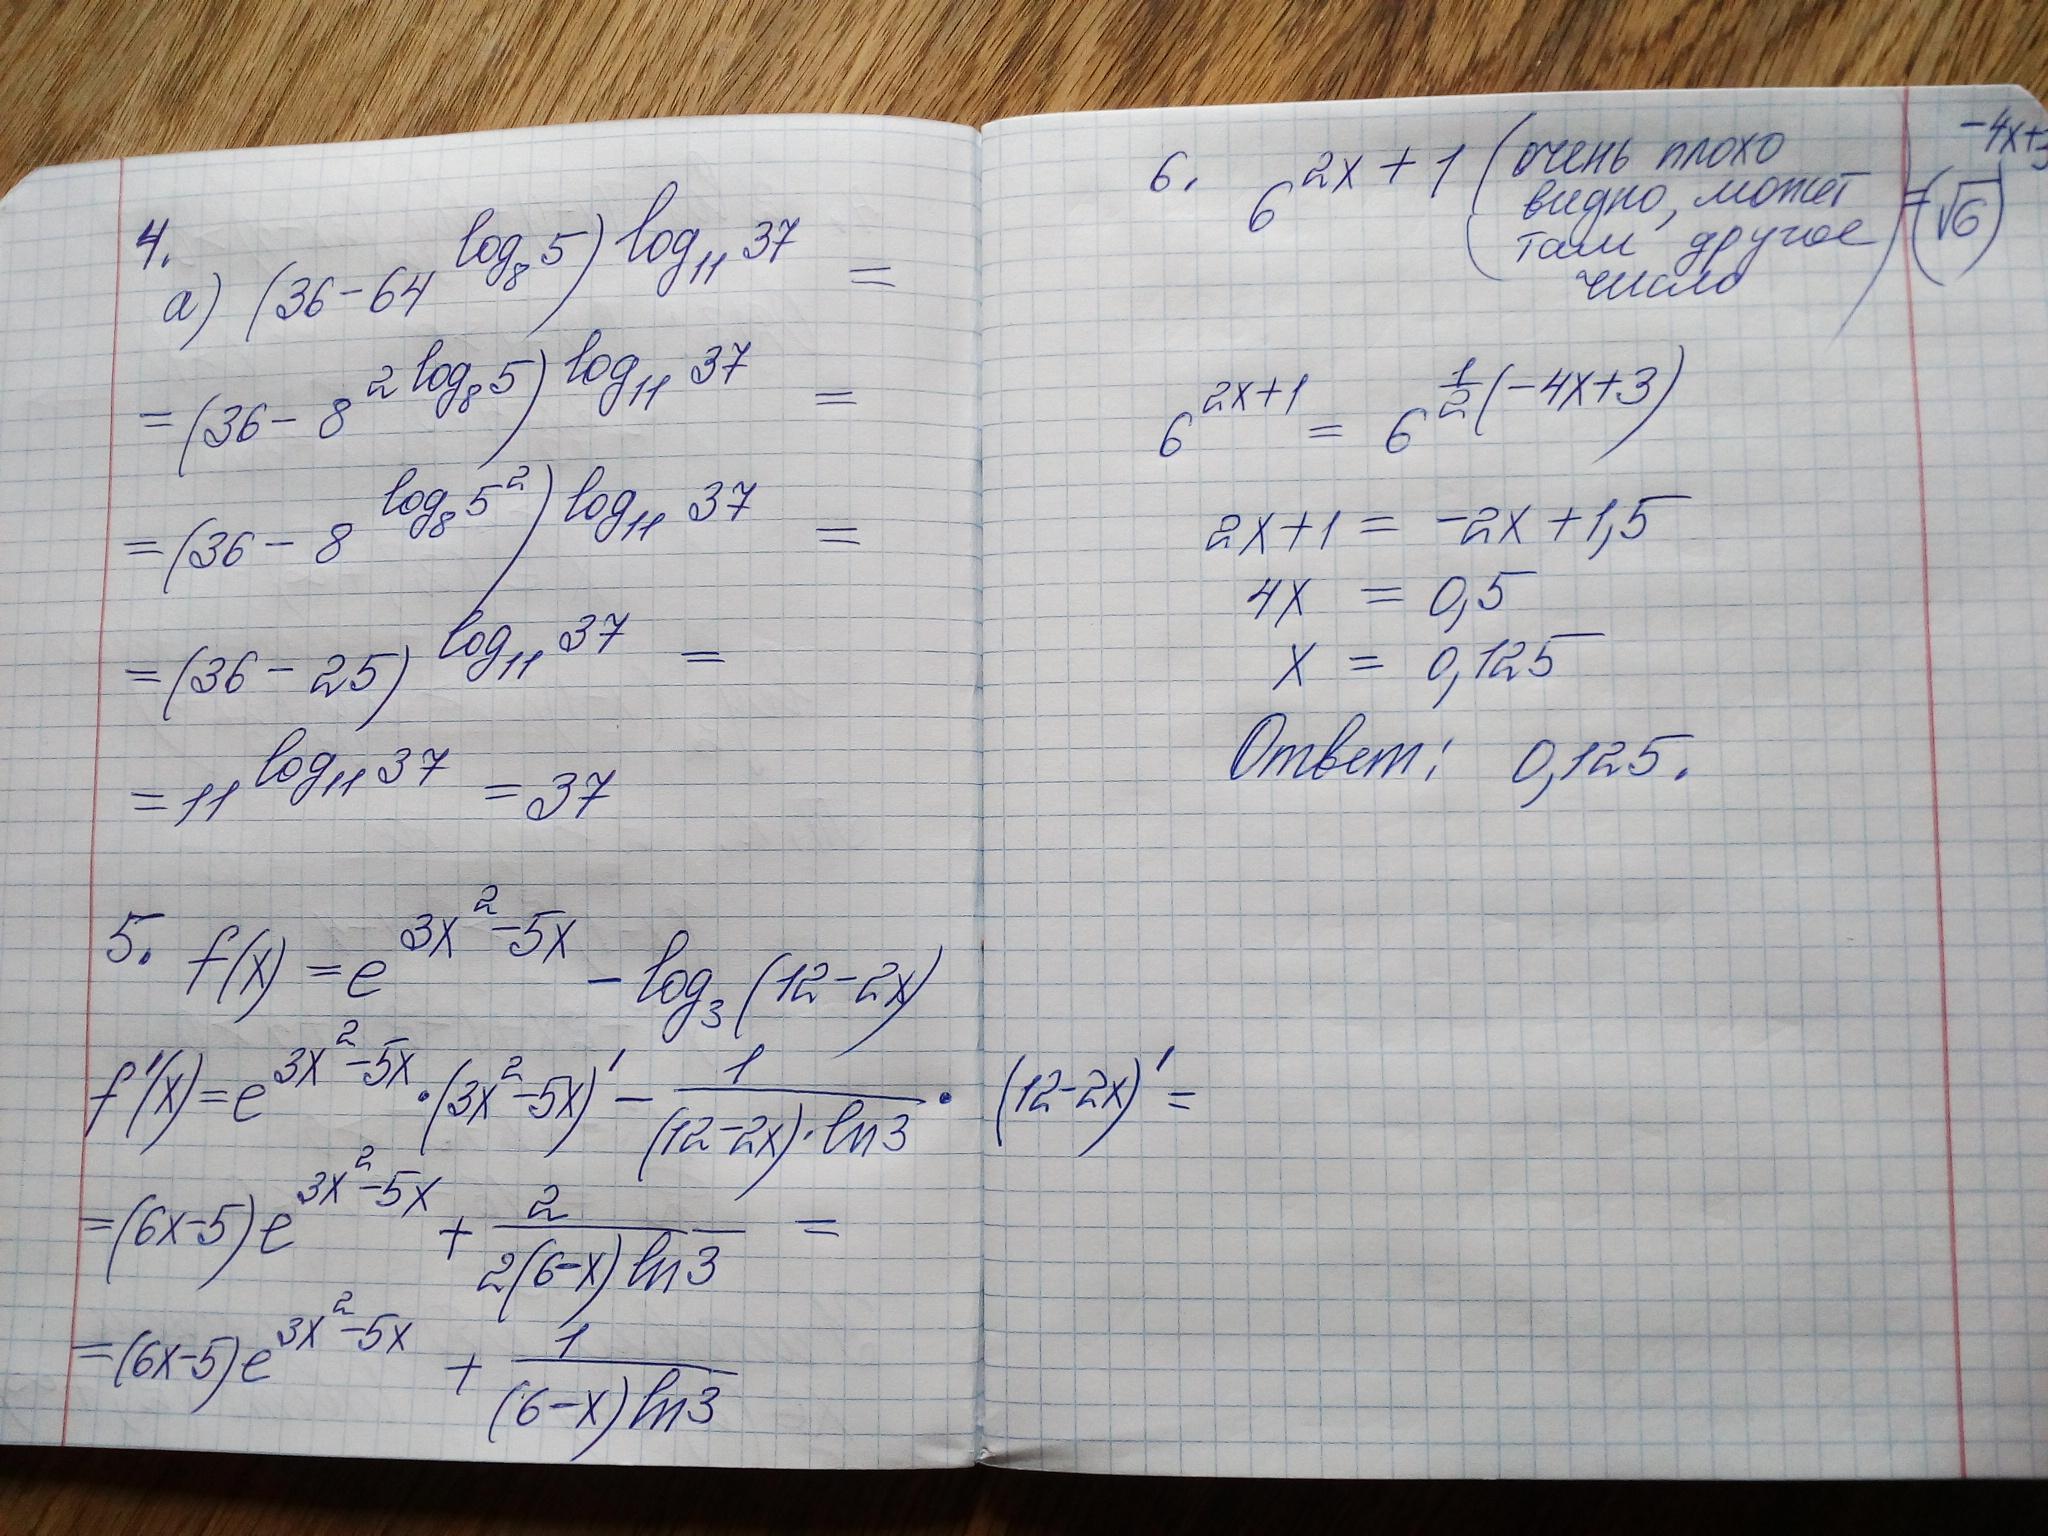 4.
а) (36-64^(log₈5))^(log₁₁37) =
= (36-8^(2log₈5))^(log₁₁37) =
= (36-8^(log₈5²))^(log₁₁37) =
= (36-25)^(log₁₁37) =
= 11^(log₁₁37) = 37
5. f(x) = e^(3x²-5x) - log₃(12-2x)
f'(x) = e^(3x²-5x) · (3x²-5x)' - 1/((12-2x)·ln3) · (12-2x)' =
= (6x-5)e^(3x²-5x) + 2/(2(6-x)ln3) =
= (6x-5)e^(3x²-5x) + 1/((6-x)ln3)
6. 6^(2x+1) (очень плохо
видно, может
там другое
число) = (√6)^(-4x+3)
6^(2x+1) = 6^(½(-4x+3))
2x+1 = -2x+1,5
4x = 0,5
x = 0,125
Ответ: 0,125.